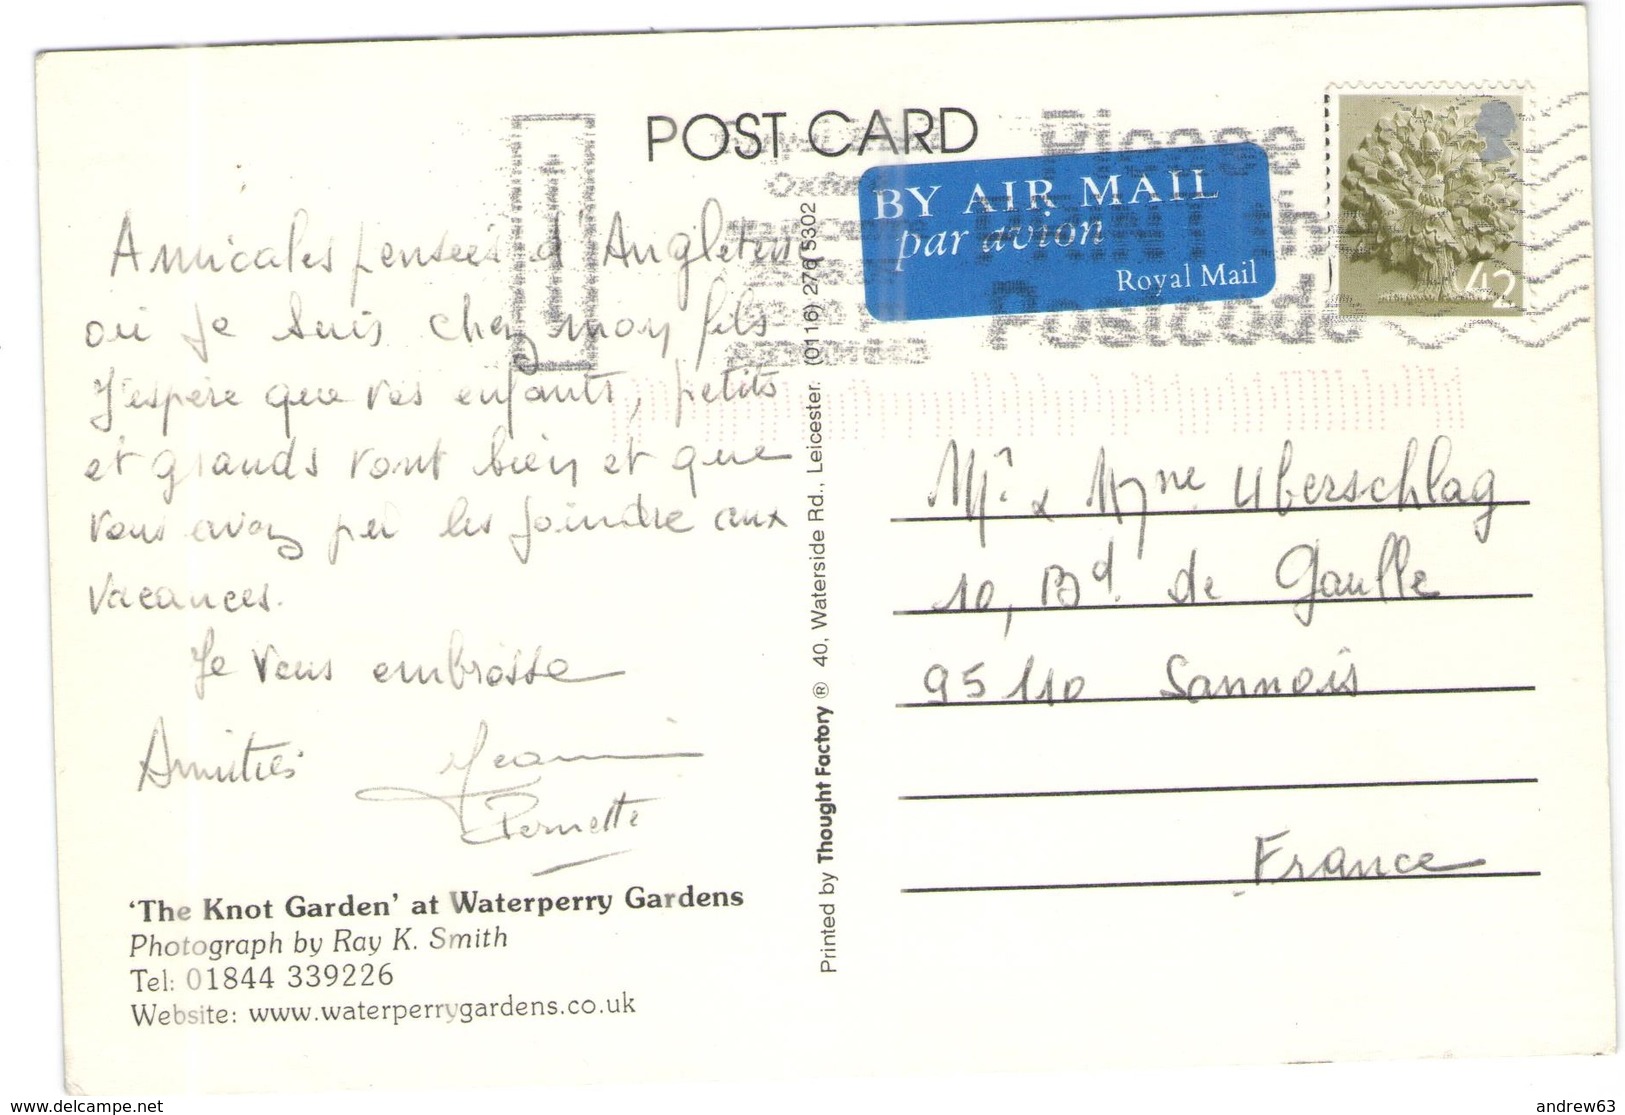 POST CARD
BY AIR MAIL
par avion
Royal Mail
Please
in
Postcode
42
Amicales pensées d'Angleterre
où je suis chez mon fils
J'espère que vos enfants, petits
et grands vont bien et que
vous avez pu les joindre aux
vacances.
Je vous embrasse
Amitiés
Pernette
'The Knot Garden' at Waterperry Gardens
Photograph by Ray K. Smith
Tel: 01844 339226
Website: www.waterperrygardens.co.uk
Printed by Thought Factory ® 40, Waterside Rd., Leicester. (0116) 276 5302
Mr. & Mme Uberschlag
10, Bd. de Gaulle
95110 Sannois
France
www.delcampe.net
andrew63